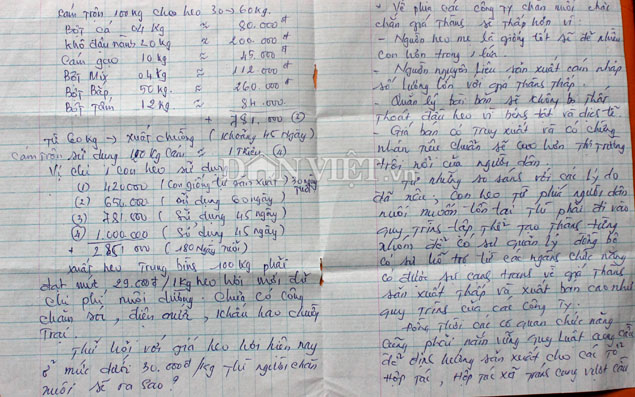 Cám trộn 100kg cho heo 30 → 60kg.
Bột cá 04kg ≈ 80.000đ
Khô dầu nành 20kg ≈ 200.000đ
Cám gạo 10kg ≈ 45.000đ
Bột Mỳ 04kg ≈ 112.000đ
Bột Bắp, 50kg. ≈ 260.000đ
Bột tấm 12kg ≈ 84.000đ
+ 781.000đ (3)
Từ 60kg → xuất chuồng (khoảng 45 ngày)
Cám trộn sử dụng 100kg cám ≈ 1 triệu (4)
Vị chi 1 con heo sử dụng
(1) 420.000 (con giống tự sản xuất) 30 ngày tuổi
(2) 650.000 (sử dụng 60 ngày)
(3) 781.000 (sử dụng 45 ngày)
(4) 1.000.000 (sử dụng 45 ngày)
+ 2.851.000 (180 ngày nuôi)
Xuất heo trung bình 100kg phải
đạt mức 29.000đ/1kg heo hơi mới đủ
chi phí nuôi dưỡng. Chưa có công
chăm sóc, điện nước, khấu hao chuồng
trại.
Thử hỏi với giá heo hơi hiện nay
ở mức dưới 30.000đ/kg thì người chăn
nuôi sẽ ra sao?
- Về phía các công ty chăn nuôi chắc
chắn giá thành sẽ thấp hơn vì:
- Nguồn heo mẹ là giống tốt sẽ đẻ nhiều
con hơn trong 1 lứa.
- Nguồn nguyên liệu sản xuất cám nhập
số lượng lớn với giá thành thấp.
- Quản lý bài bản sẽ không bị thất
thoát đầu heo vì bệnh tật và dịch tễ
- Giá bán có truy xuất và có chứng
nhận tiêu chuẩn sẽ cao hơn thị trường
trôi nổi của người dân.
Từ những so sánh với các lý do
đã nêu, con heo từ phía người dân
nuôi muốn tồn tại thì phải đi vào
quy trình tập thể tạo thành từng
nhóm để có sự quản lý đồng bộ
có sự hỗ trợ từ các ngành chức năng
có được sự cạnh tranh về giá thành
sản xuất thấp và xuất bán cao như
quy trình của các công ty.
Đồng thời các cơ quan chức năng
cũng phải nắm vững quy luật cung cầu
để định hướng sản xuất cho các tổ
hợp tác, hợp tác xã trong cung vượt cầu
DÂN VIỆT.vn